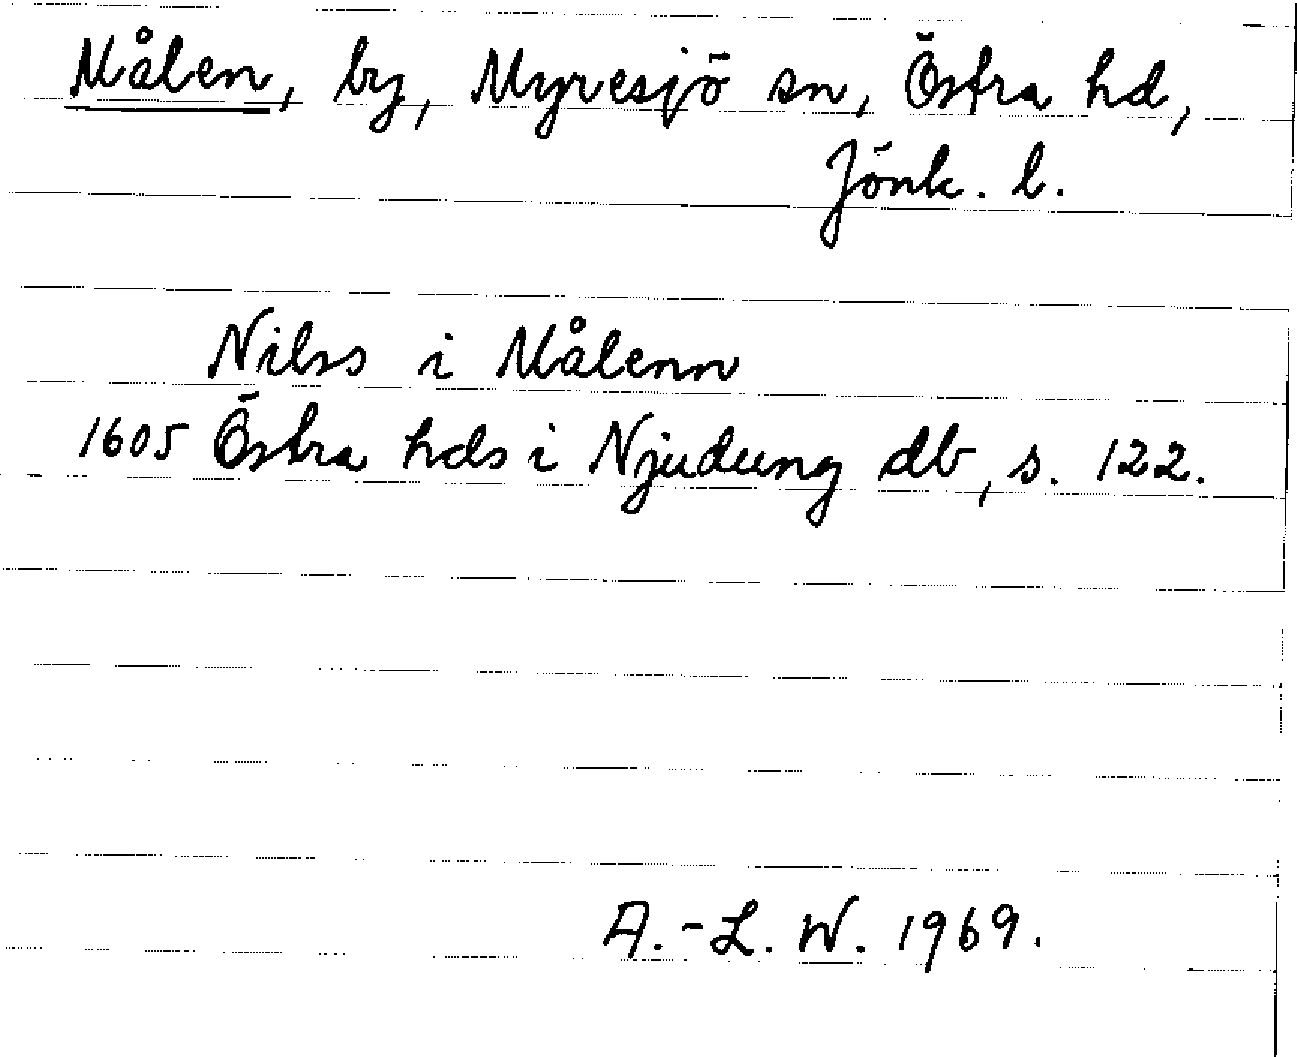 Målen, by, Myresjö sn, Östra hd,
Jönk. l.
Nilss i Målenn
1605 Östra hds i Njudung db, s. 122.
A.-L. W. 1969.